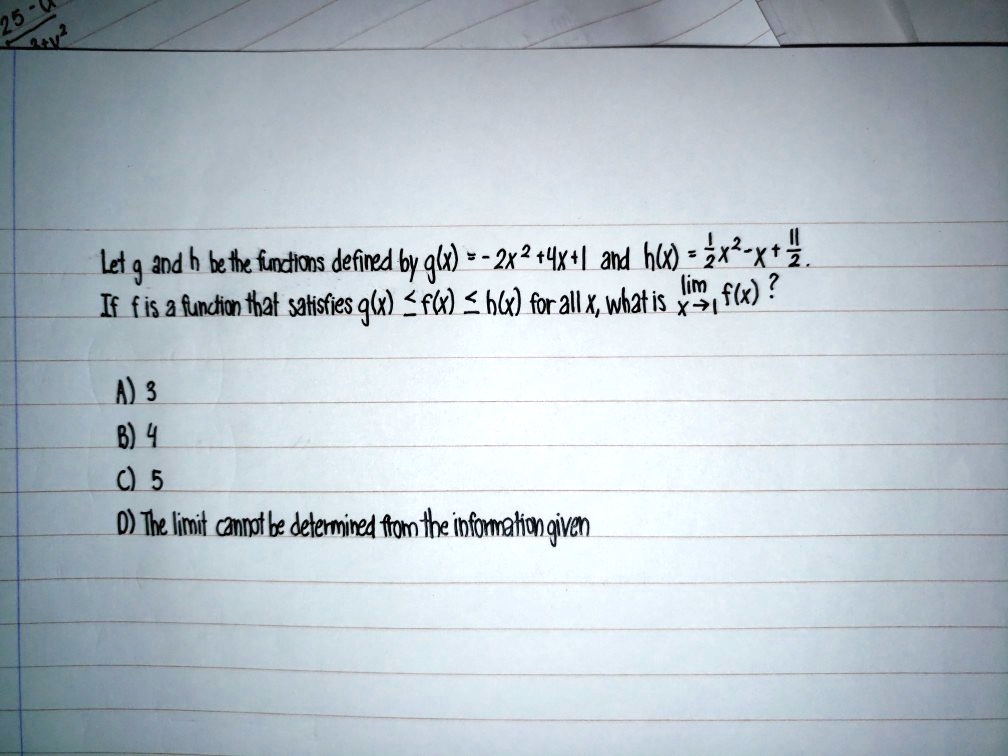 25 - 
Let g and h be the functions defined by g(x) = - 2x² + 4x + 1 and h(x) = 1/2 x² - x + 11/2.
If f is a function that satisfies g(x) ≤ f(x) ≤ h(x) for all x, what is lim x→1 f(x) ?
A) 3
B) 4
C) 5
D) The limit cannot be determined from the information given